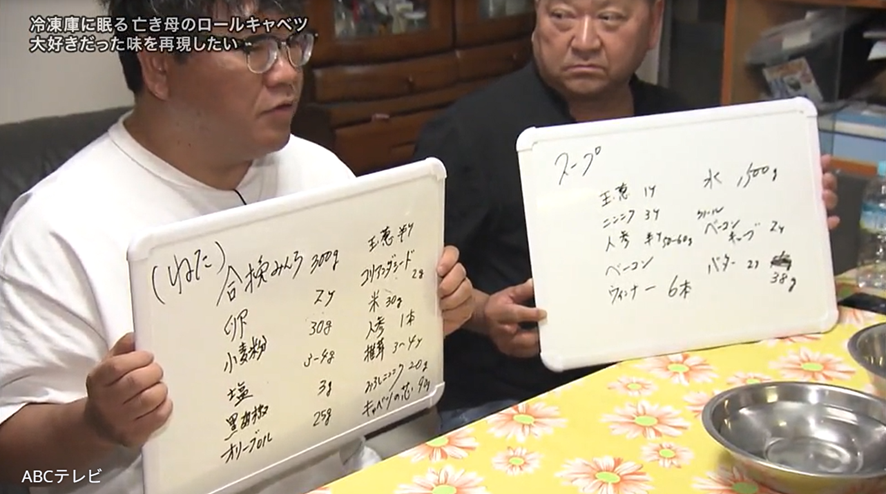 冷凍庫に眠る亡き母のロールキャベツ
大好きだった味を再現したい
(ねた)
合挽みんち 300g
卵 2ケ
小麦粉 30g
塩 3~4g
黒胡椒 3g
オリーブオイル 25g
玉葱 半ケ
コリアンダーシード 2g
米 30g
人参 1本
椎茸 3~4ケ
ニンニク 20g
キャベツの芯
スープ
玉葱 1ケ
ニンニク 3ケ
人参 半ケ 50~60g
ベーコン
ウィンナー 6本
水 1,500g
キューブ 2ケ
バター
38g
ABCテレビ